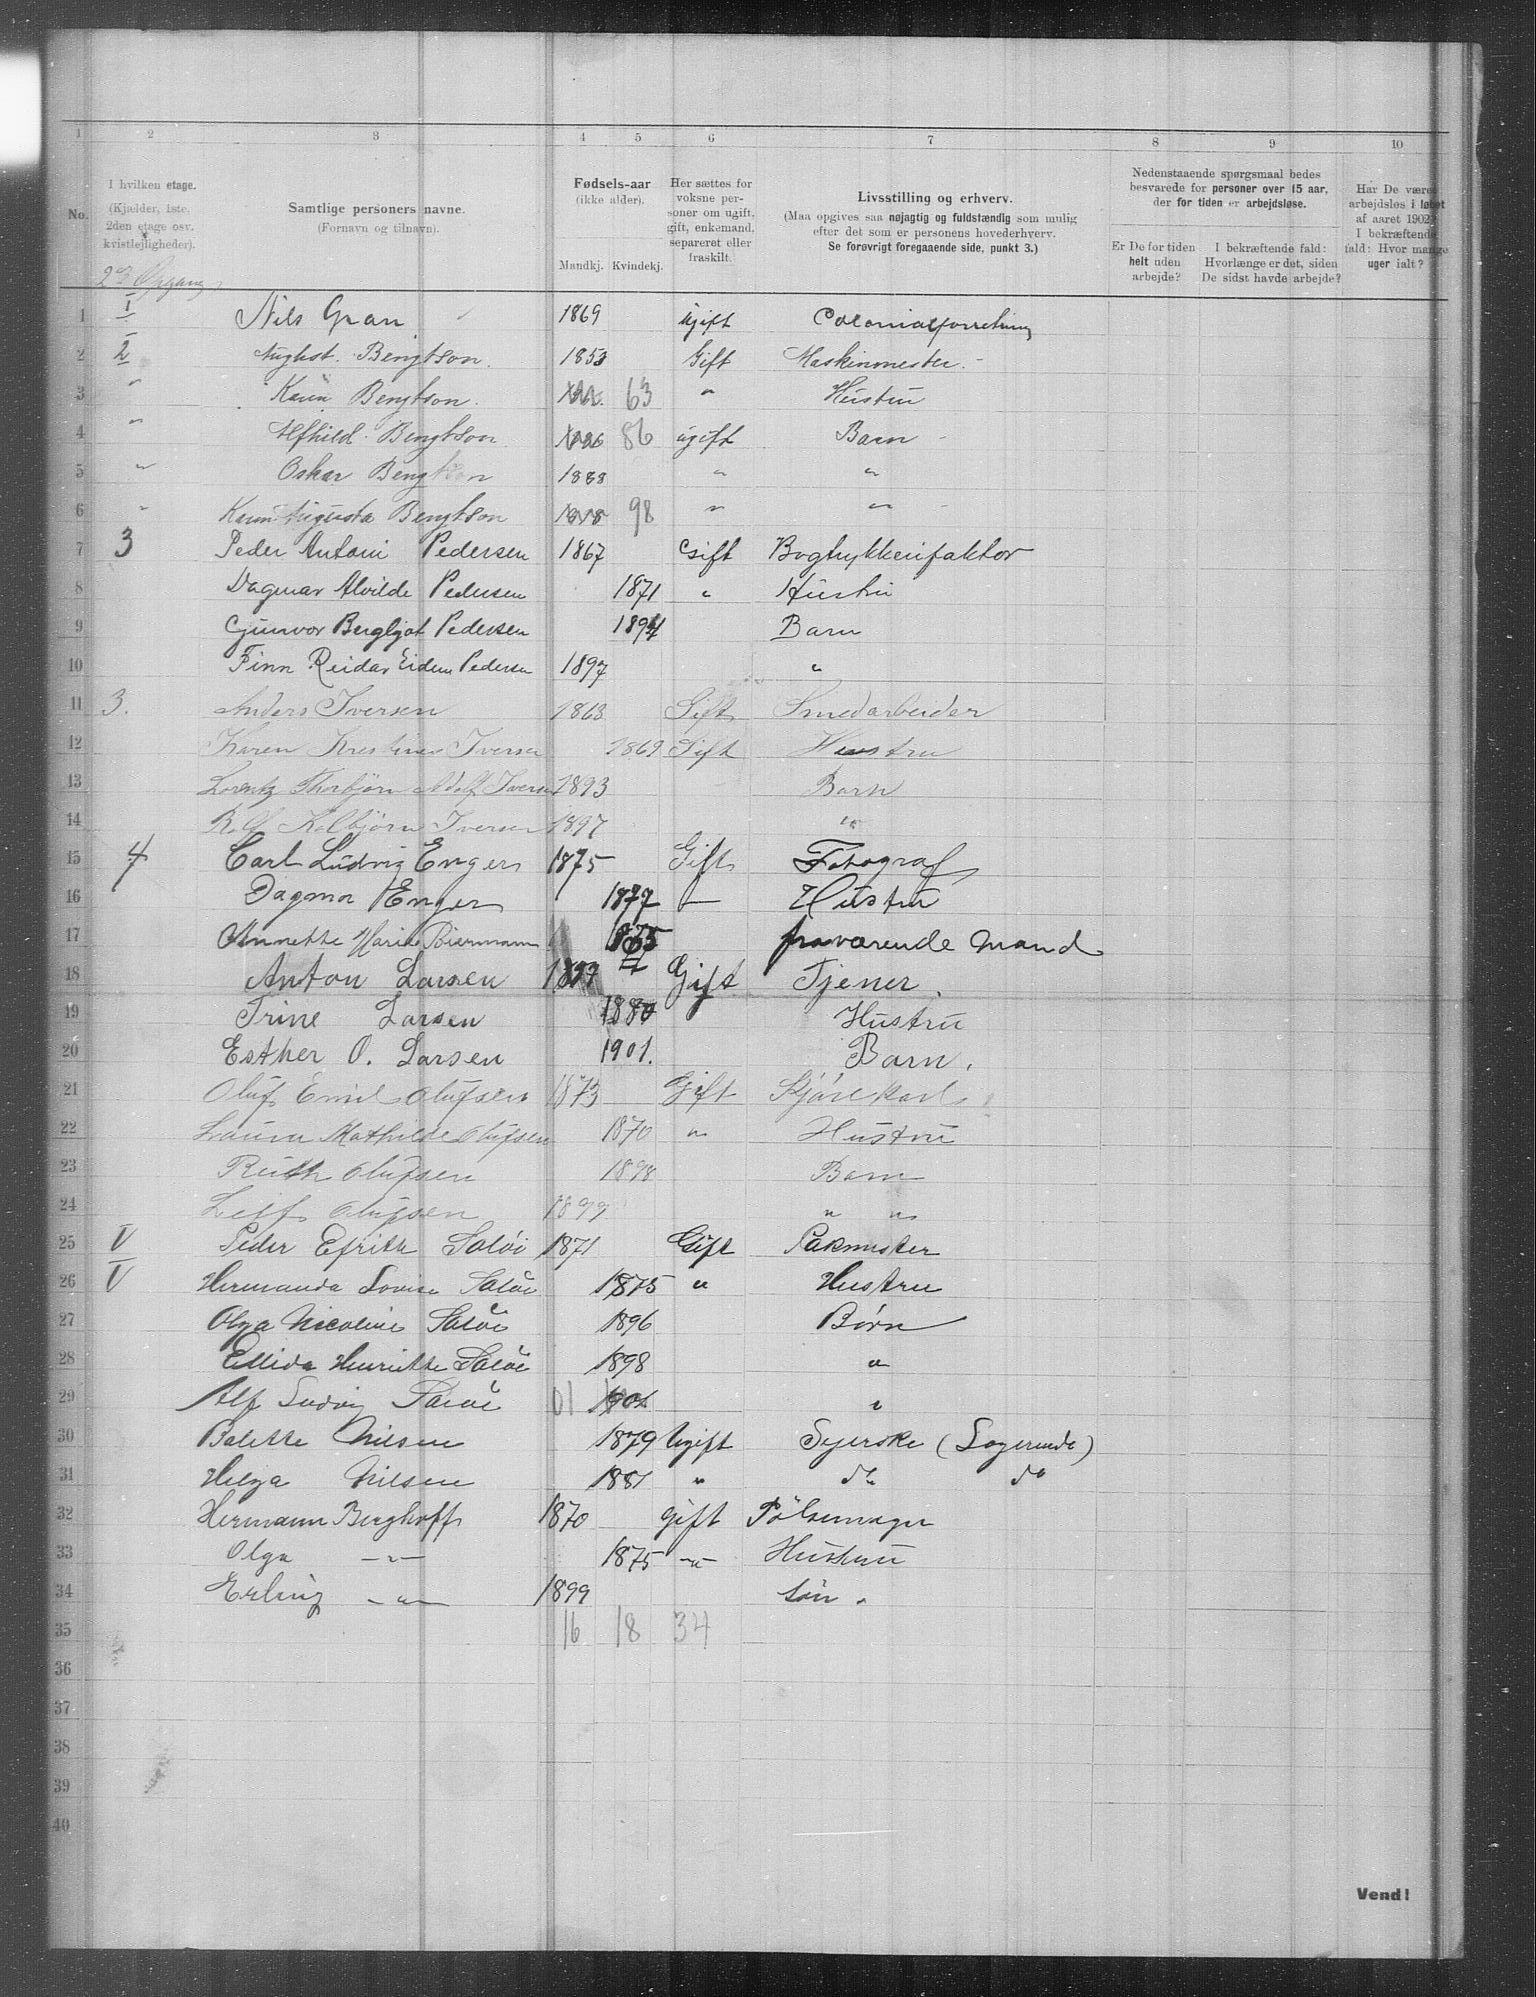 1 2 3 4 5 6 7 8 9 10
No.
I hvilken etage.
(Kjælder, 1ste.
2den etage osv.
kvistlejligheder).
Samtlige personers navne.
(Fornavn og tilnavn).
Fødsels-aar
(ikke alder).
Mandkj. Kvindekj.
Her sættes for
voksne per-
soner om ugift,
gift, enkemand,
separeret eller
fraskilt.
Livsstilling og erhverv.
(Maa opgives saa nøjagtig og fuldstændig som mulig
efter det som er personens hovederhverv.
Se forøvrigt foregaaende side, punkt 3.)
Nedenstaaende spørgsmaal bedes
besvarede for personer over 15 aar,
der for tiden er arbejdsløse.
Er De for tiden
helt uden
arbejde?
I bekræftende fald:
Hvorlænge er det, siden
De sidst havde arbejde?
Har De været
arbejdsløs i løbet
af aaret 1902?
I bekræftende
fald: Hvor mange
uger ialt?
2den Opgang
1 1 Nils Gran 1869 ugift Colonialforretning
2 2 Aughst. Bengtson. 1853 Gift Maskinmester
3 " Karin Bengtson. 63 " Hustru
4 " Alfhild Bengtson 86 ugift Barn
5 " Oskar Bengtson 1888 " "
6 " Karin Augusta Bengtson 98 " "
7 3 Peder Antoni Pedersen 1867 Gift Bogtrykkerifaktor
8 Dagmar Alvilde Pedersen 1871 " Hustru
9 Gunvor Bergljot Pedersen 1894 Barn
10 Finn Reidar Eidem Pedersen 1897 "
11 3. Anders Iversen 1863 Gift Smedarbeider
12 Karen Kristine Iversen 1869 Gift Hustru
13 Lorentz Thorbjørn Adolf Iversen 1893 Barn
14 Rolf Kolbjørn Iversen 1897 "
15 4 Carl Ludvig Enger 1875 Gift Fotograf
16 Dagmar Enger 1877 — Hustru
17 Annette Marie Biermann 1875 fraværende Mand
18 Anton Larsen 1877 Gift Tjener.
19 Trine Larsen 1880 Hustru
20 Esther O. Larsen 1901. Barn.
21 Oluf Emil Olufsen 1873 Gift Kjørekarl
22 Laura Mathilde Olufsen 1870 " Hustru
23 Ruth Olufsen 1898 Barn
24 Leif Olufsen 1899 " "
25 V Peder Efrith Saløi 1871 Gift Pakmester
26 V Hermanda Lovise Saløi 1875 " Hustru
27 Olga Nicoline Saløi 1896 Børn
28 Ellida Henriette Saløi 1898 "
29 Alf Ludvig Saløi 01 1901 "
30 Balette Nilsen 1879 Ugift Syerske (Logerende)
31 Helga Nilsen 1881 " do do
32 Hermann Berghoff 1870 gift Pølsemager
33 Olga —"— 1875 —"— Hustru
34 Erling —"— 1899 Søn.
35 16 18 34
36
37
38
39
40
Vend!